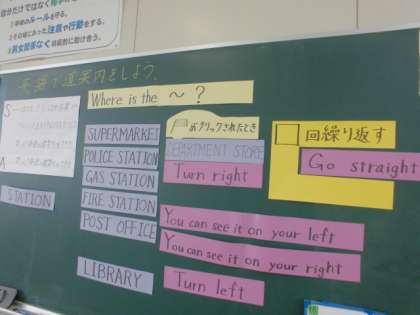 自分だけではなく相手
①学級のルールを守る。
②その場にあった注意や行動をする。
③男女関係なく積極的に助け合う。
英語で道案内をしよう。
Where is the ～?
がクリックされたとき
回繰り返す
S
A
SUPERMARKET
DEPARTMENT STORE
POLICE STATION
Turn right
Go straight
GAS STATION
STATION
FIRE STATION
POST OFFICE
You can see it on your left
You can see it on your right
LIBRARY
Turn left